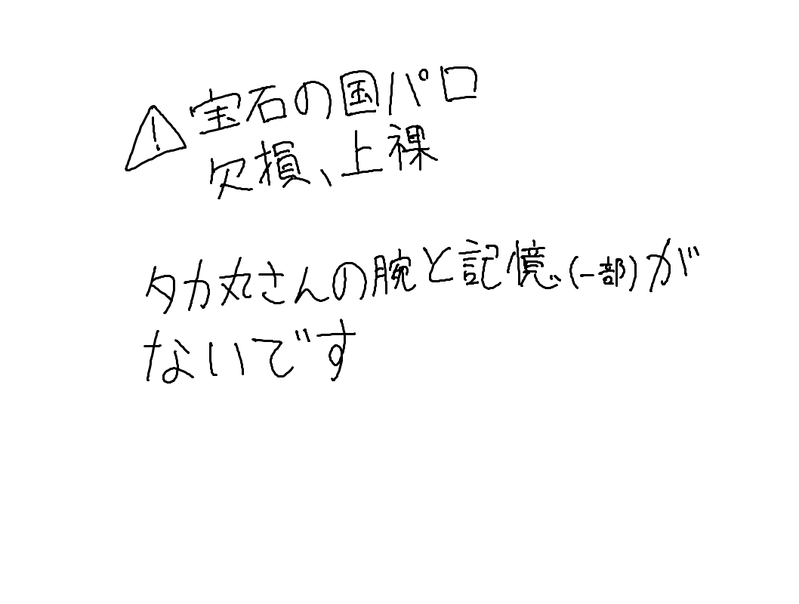 ⚠宝石の国パロ
欠損、上裸
タカ丸さんの腕と記憶(一部)が
ないです